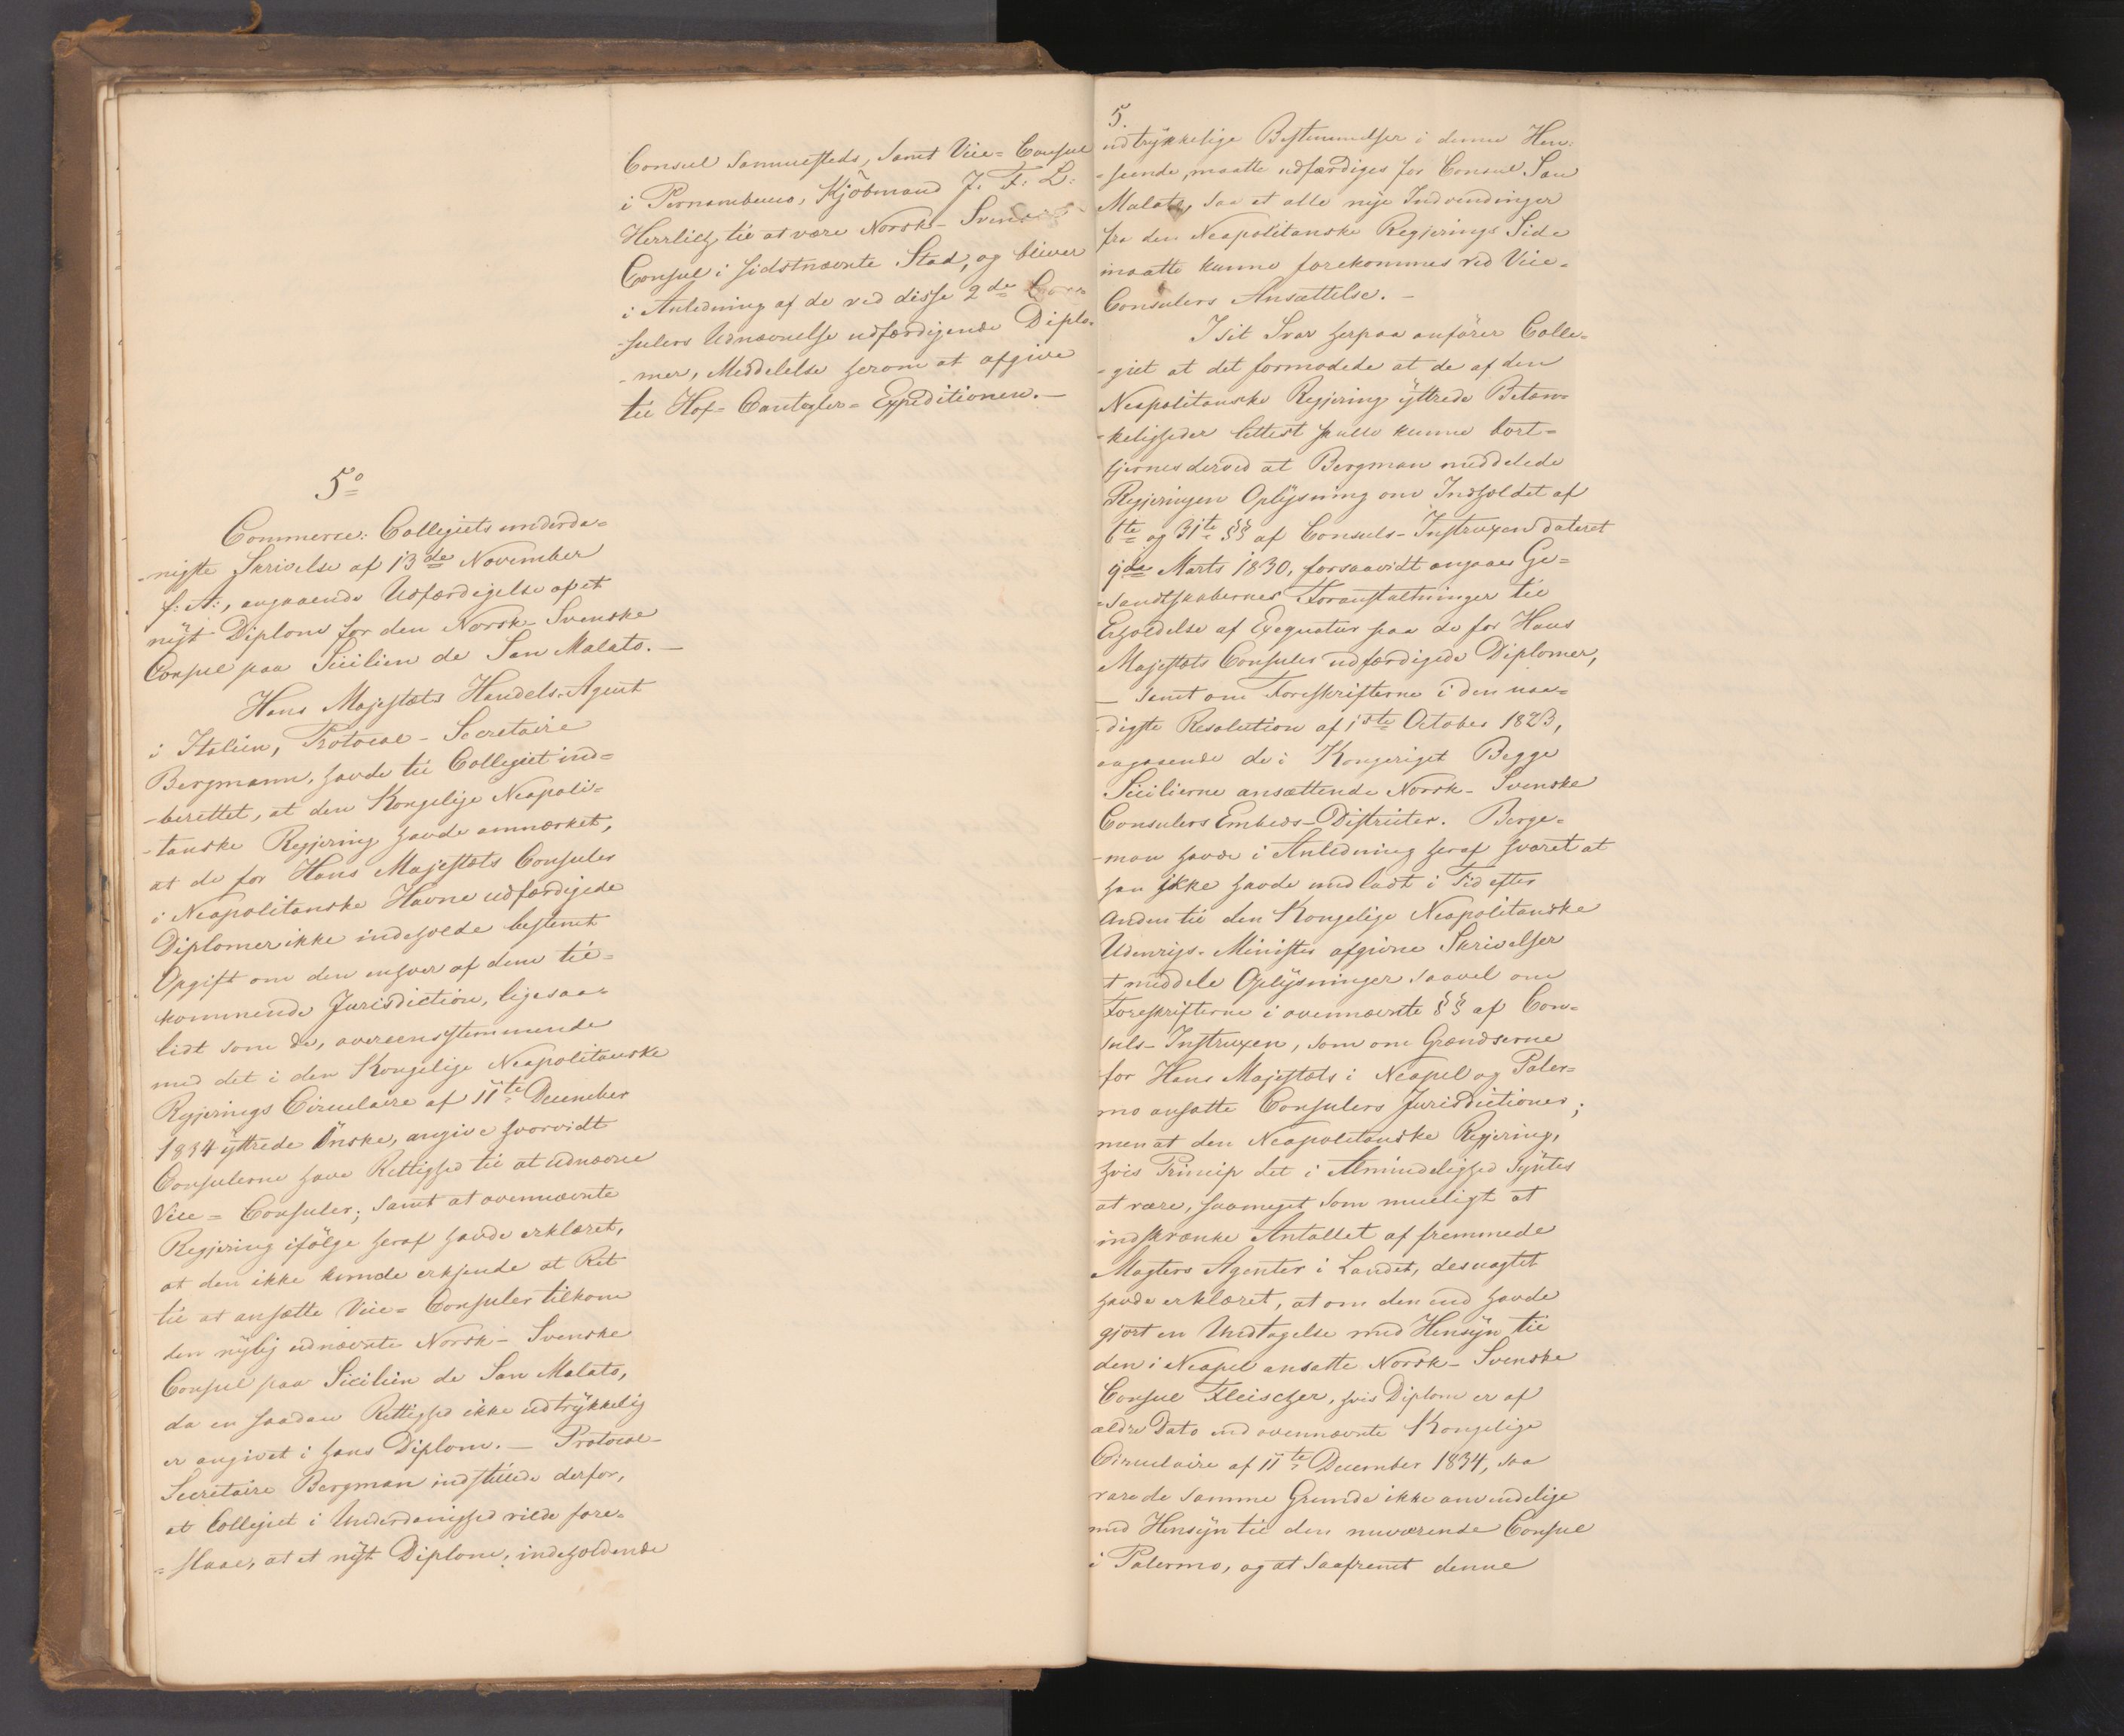 Consul sammesteds, samt Vice=Consul
i Pernambuco, Kjöbmand J. F. L:
Herrlich, til at være Norsk-Svensk
Consul i sidstnævnte Stad, og bliver
i Anledning af de ved disse 2de Con-
-sulers Udnævnelse udfærdigende Diplo-
-mer, Meddelelse herom at afgive
til Hof=Cantzler=Expeditionen.—
5o
Commerce: Collegiets underda=
-nigste Skrivelse af 13de November
f: A:, angaaende Udfærdigelse af et
nyt Diplom for den Norsk-Svenske
Consul paa Sicilien de San Malato.—
Hans Majestæts Handels-Agent
i Italien, Protocol-Secretaire
Bergmann, havde til Collegiet ind=
-berettet, at den Kongelige Neapoli=
-tanske Regjering havde anmærket,
at de for Hans Majestæts Consuler
i Neapolitanske Havne udfærdigede
Diplomer ikke indeholde bestemt
Opgift om den enhver af dem til=
kommende Jurisdiction, ligesaa=
lidt som de, overeensstemmende
med det i den Kongelige Neapolitanske
Regjerings Circulaire af 11te December
1834 yttrede Önske, angive hvorvidt
Consulerne have Rettighed til at udnævne
Vice=Consuler; samt at ovennævnte
Regjering ifölge heraf havde erklæret,
at den ikke kunde erkjende at Ret
til at ansætte Vice=Consuler tilkom
den nylig udnævnte Norsk-Svenske
Consul paa Sicilien de San Malato,
da en saadan Rettighed ikke udtrykkelig
er angivet i hans Diplom.— Protocol-
Secretaire Bergman indstillede derfor,
at Collegiet i Underdanighed vilde fore=
=slaae, at et nyt Diplom, indeholdende
5.
udtrykkelige Bestemmelser i denne Hen:
=seende, maatte udfærdiges for Consul San
Malato, saa at alle nye Indvendinger
fra den Neapolitanske Regjerings Side
maatte kunne forekommes ved Vice=
Consulers Ansættelse.—
I sit Svar herpaa anförer Colle=
-giet at det formodede at de af den
Neapolitanske Regjering yttrede Betæn=
-keligheder lettest skulle kunne bort=
fjernes derved at Bergman meddelede
Regjeringen Oplysning om Indholdet af
6te og 31te §§ af Consuls-Instruxen dateret
9de Marts 1830, forsaavidt angaaer Ge=
=sandtskabernes Foranstaltninger til
Erholdelse af Exequatur paa de for Hans
Majestæts Consuler udfærdigede Diplomer,
— samt om Foreskrifterne i den naa=
-digste Resolution af 1ste October 1823,
angaaende de i Kongeriget Begge
Sicilierne ansættende Norsk-Svenske
Consulers Embeds-Districter. Berge=
-man havde i Anledning heraf svaret at
han ikke havde undladt i Tid efter
anden til den Kongelige Neapolitanske
Udenrigs-Minister afgivne Skrivelser
at meddele Oplysninger saavel om
Foreskrifterne i ovennævnte §§ af Con=
suls-Instruxen, som om Grændserne
for Hans Majestæts i Neapel og Paler=
mo ansatte Consulers Jurisdictioner;
men at den Neapolitanske Regjering,
hvis Princip det i Almindelighed syntes
at være, saameget som mueligt at
indskrænke Antallet af fremmede
Magters Agenter i Landet, desuagtet
havde erklæret, at om den end havde
gjort en Undtagelse med Hensyn til
den i Neapel ansatte Norsk-Svenske
Consul Fleischer, hvis Diplom er af
ældre Dato end ovennævnte Kongelige
Circulaire af 11te December 1834, saa
vare de samme Grunde ikke anvendelige
med Hensyn til den nuværende Consul
i Palermo, og at saafremt denne